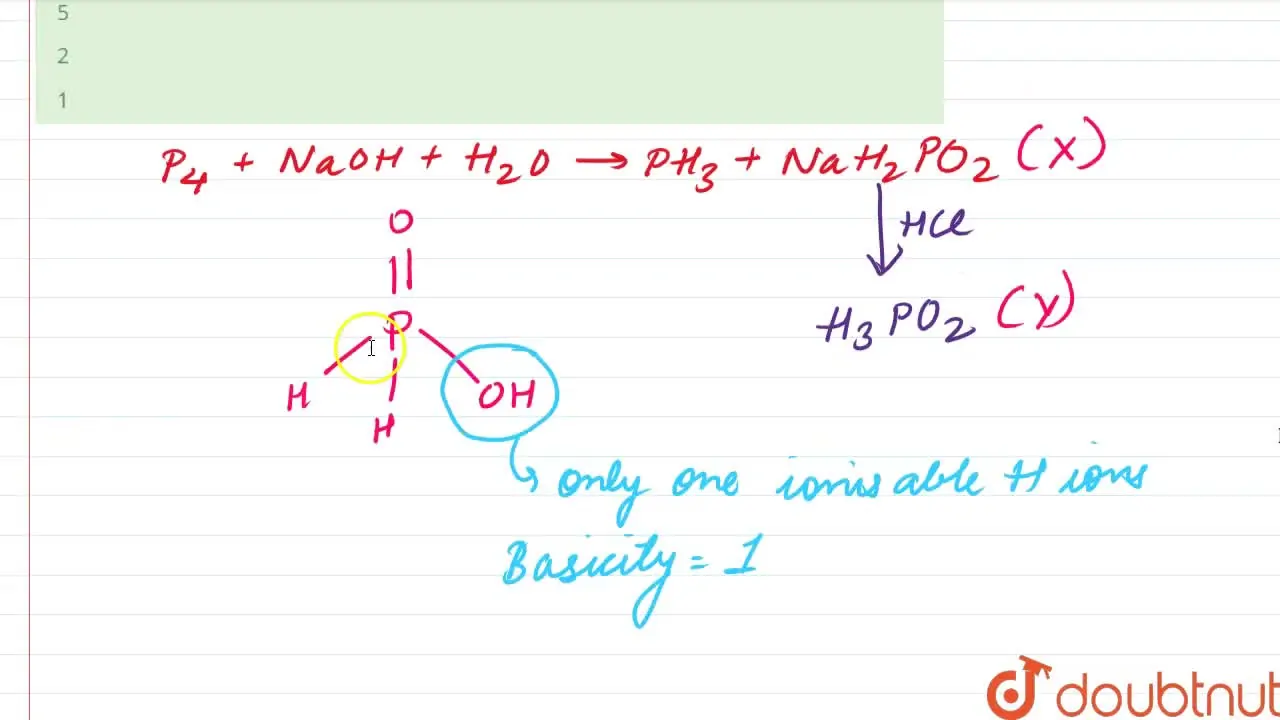 5
2
1
P4 + NaOH + H2O → PH3 + NaH2PO2 (X)
HCl
H3PO2 (Y)
O
P
H
H
OH
only one ionisable H ions
Basicity = 1
doubtnut